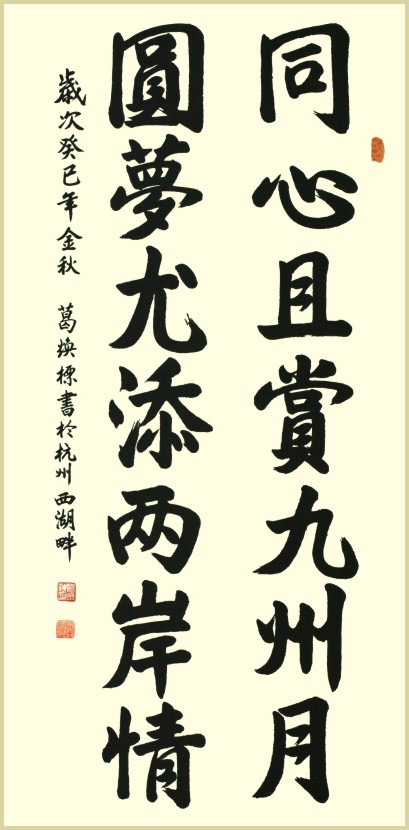 同心且賞九州月
圓夢尤添两岸情
歲次癸巳年金秋 葛焕標書於杭州西湖畔